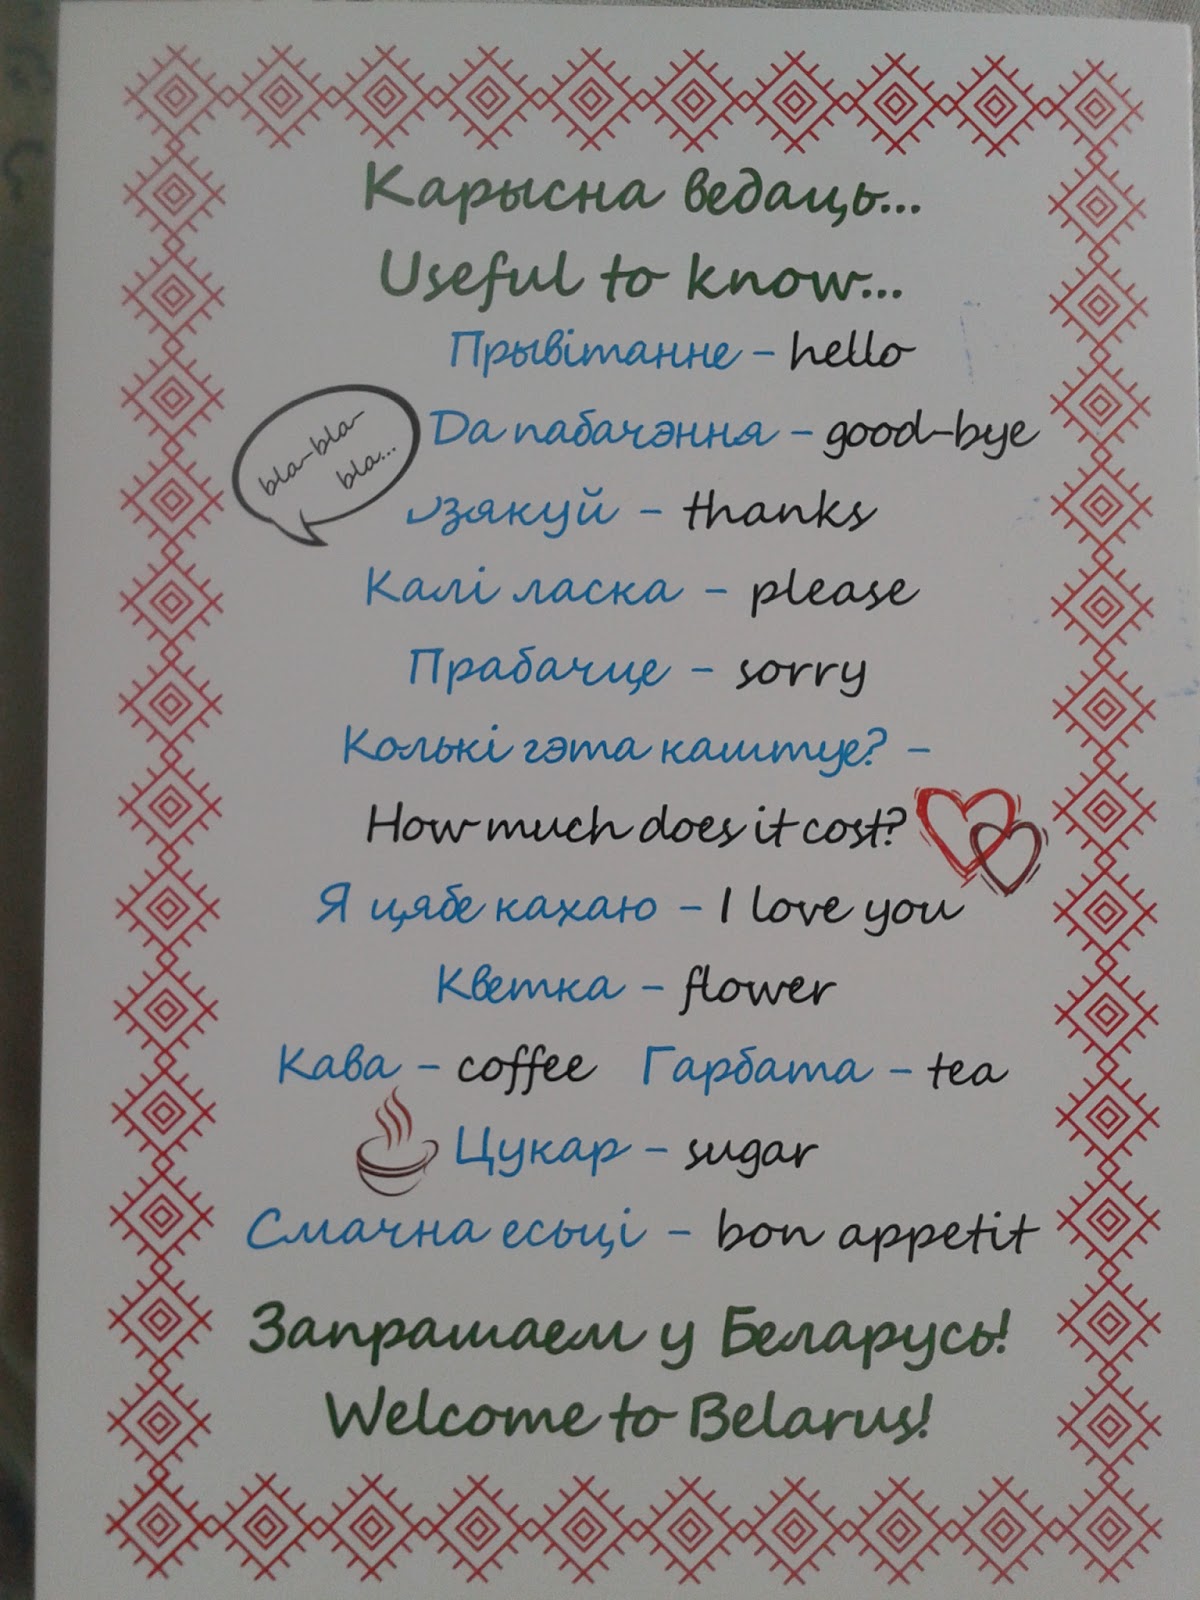 Карысна ведаць...
Useful to know...
Прывітанне – hello
bla-bla-
bla...
Да пабачэння – good-bye
Дзякуй – thanks
Калі ласка – please
Прабачце – sorry
Колькі гэта каштуе? –
How much does it cost?
Я цябе кахаю – I love you
Кветка – flower
Кава – coffee Гарбата – tea
Цукар – sugar
Смачна есьці – bon appetit
Запрашаем у Беларусь!
Welcome to Belarus!